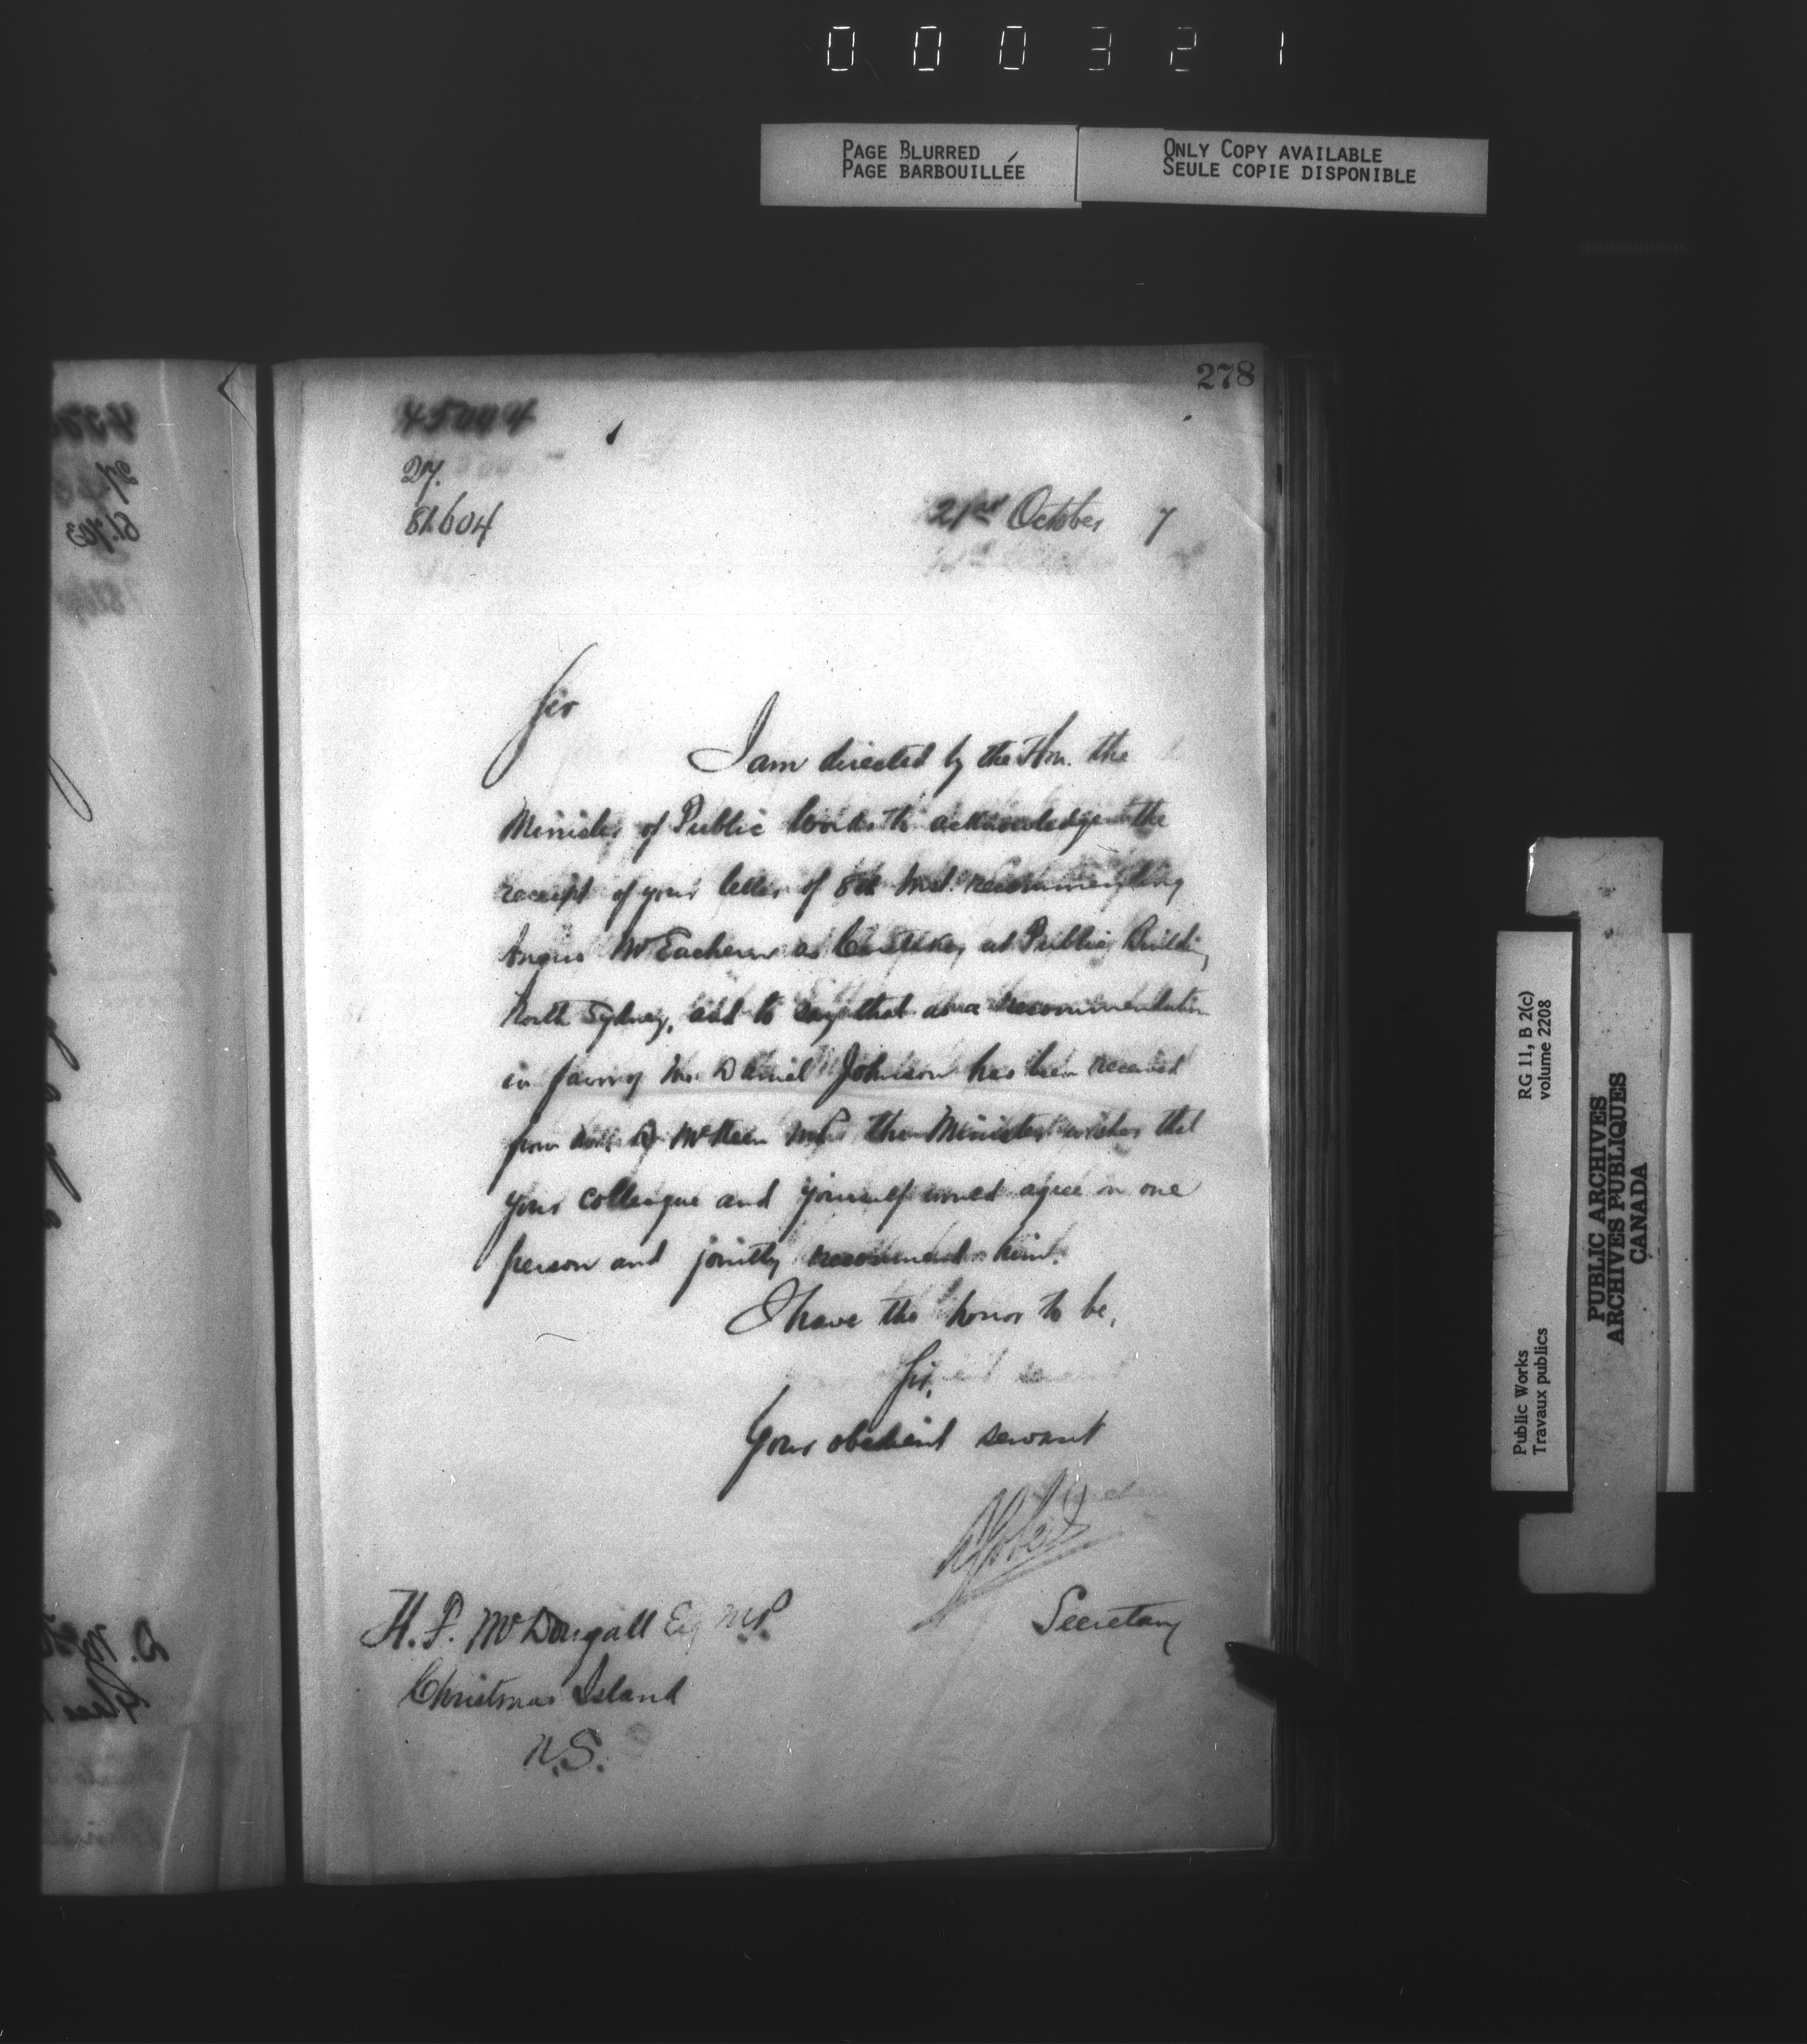 000321
PAGE BLURRED
PAGE BARBOUILLÉE
ONLY COPY AVAILABLE
SEULE COPIE DISPONIBLE
278
45004
27.
81604
21st October 7
Sir
I am directed by the Hon. the
Minister of Public Works to acknowledge the
receipt of your letter of 8th inst. recommending
Angus McEachern as Caretaker at Public Building
North Sydney, and to say that as a recommendation
in favor of Mr. Daniel Johnson has been received
from McKeen MP. the Minister wishes that
your colleague and yourself would agree on one
person and jointly recommend him.
I have the honor to be,
Sir,
Your obedient servant
Secretary
H. F. McDougall Esq M.P.
Christmas Island
N.S.
RG 11, B 2(c)
volume 2208
Public Works
Travaux publics
PUBLIC ARCHIVES
ARCHIVES PUBLIQUES
CANADA